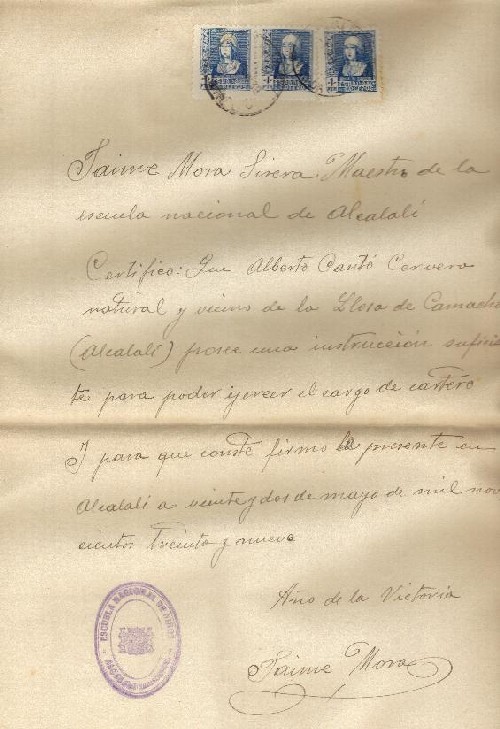 Jaime Mora Sirera. Maestro de la
escuela nacional de Alcalalí
Certifico: Que Alberto Cantó Cervera
natural y vecino de la Llosa de Camacho
(Alcalalí) posee una instrucción suficie
te para poder ejercer el cargo de cartero
Y para que conste firmo la presente en
Alcalalí a veinte y dos de mayo de mil nove
cientos treinta y nueve
Año de la Victoria
Jaime Mora
ESCUELA NACIONAL DE NIÑOS